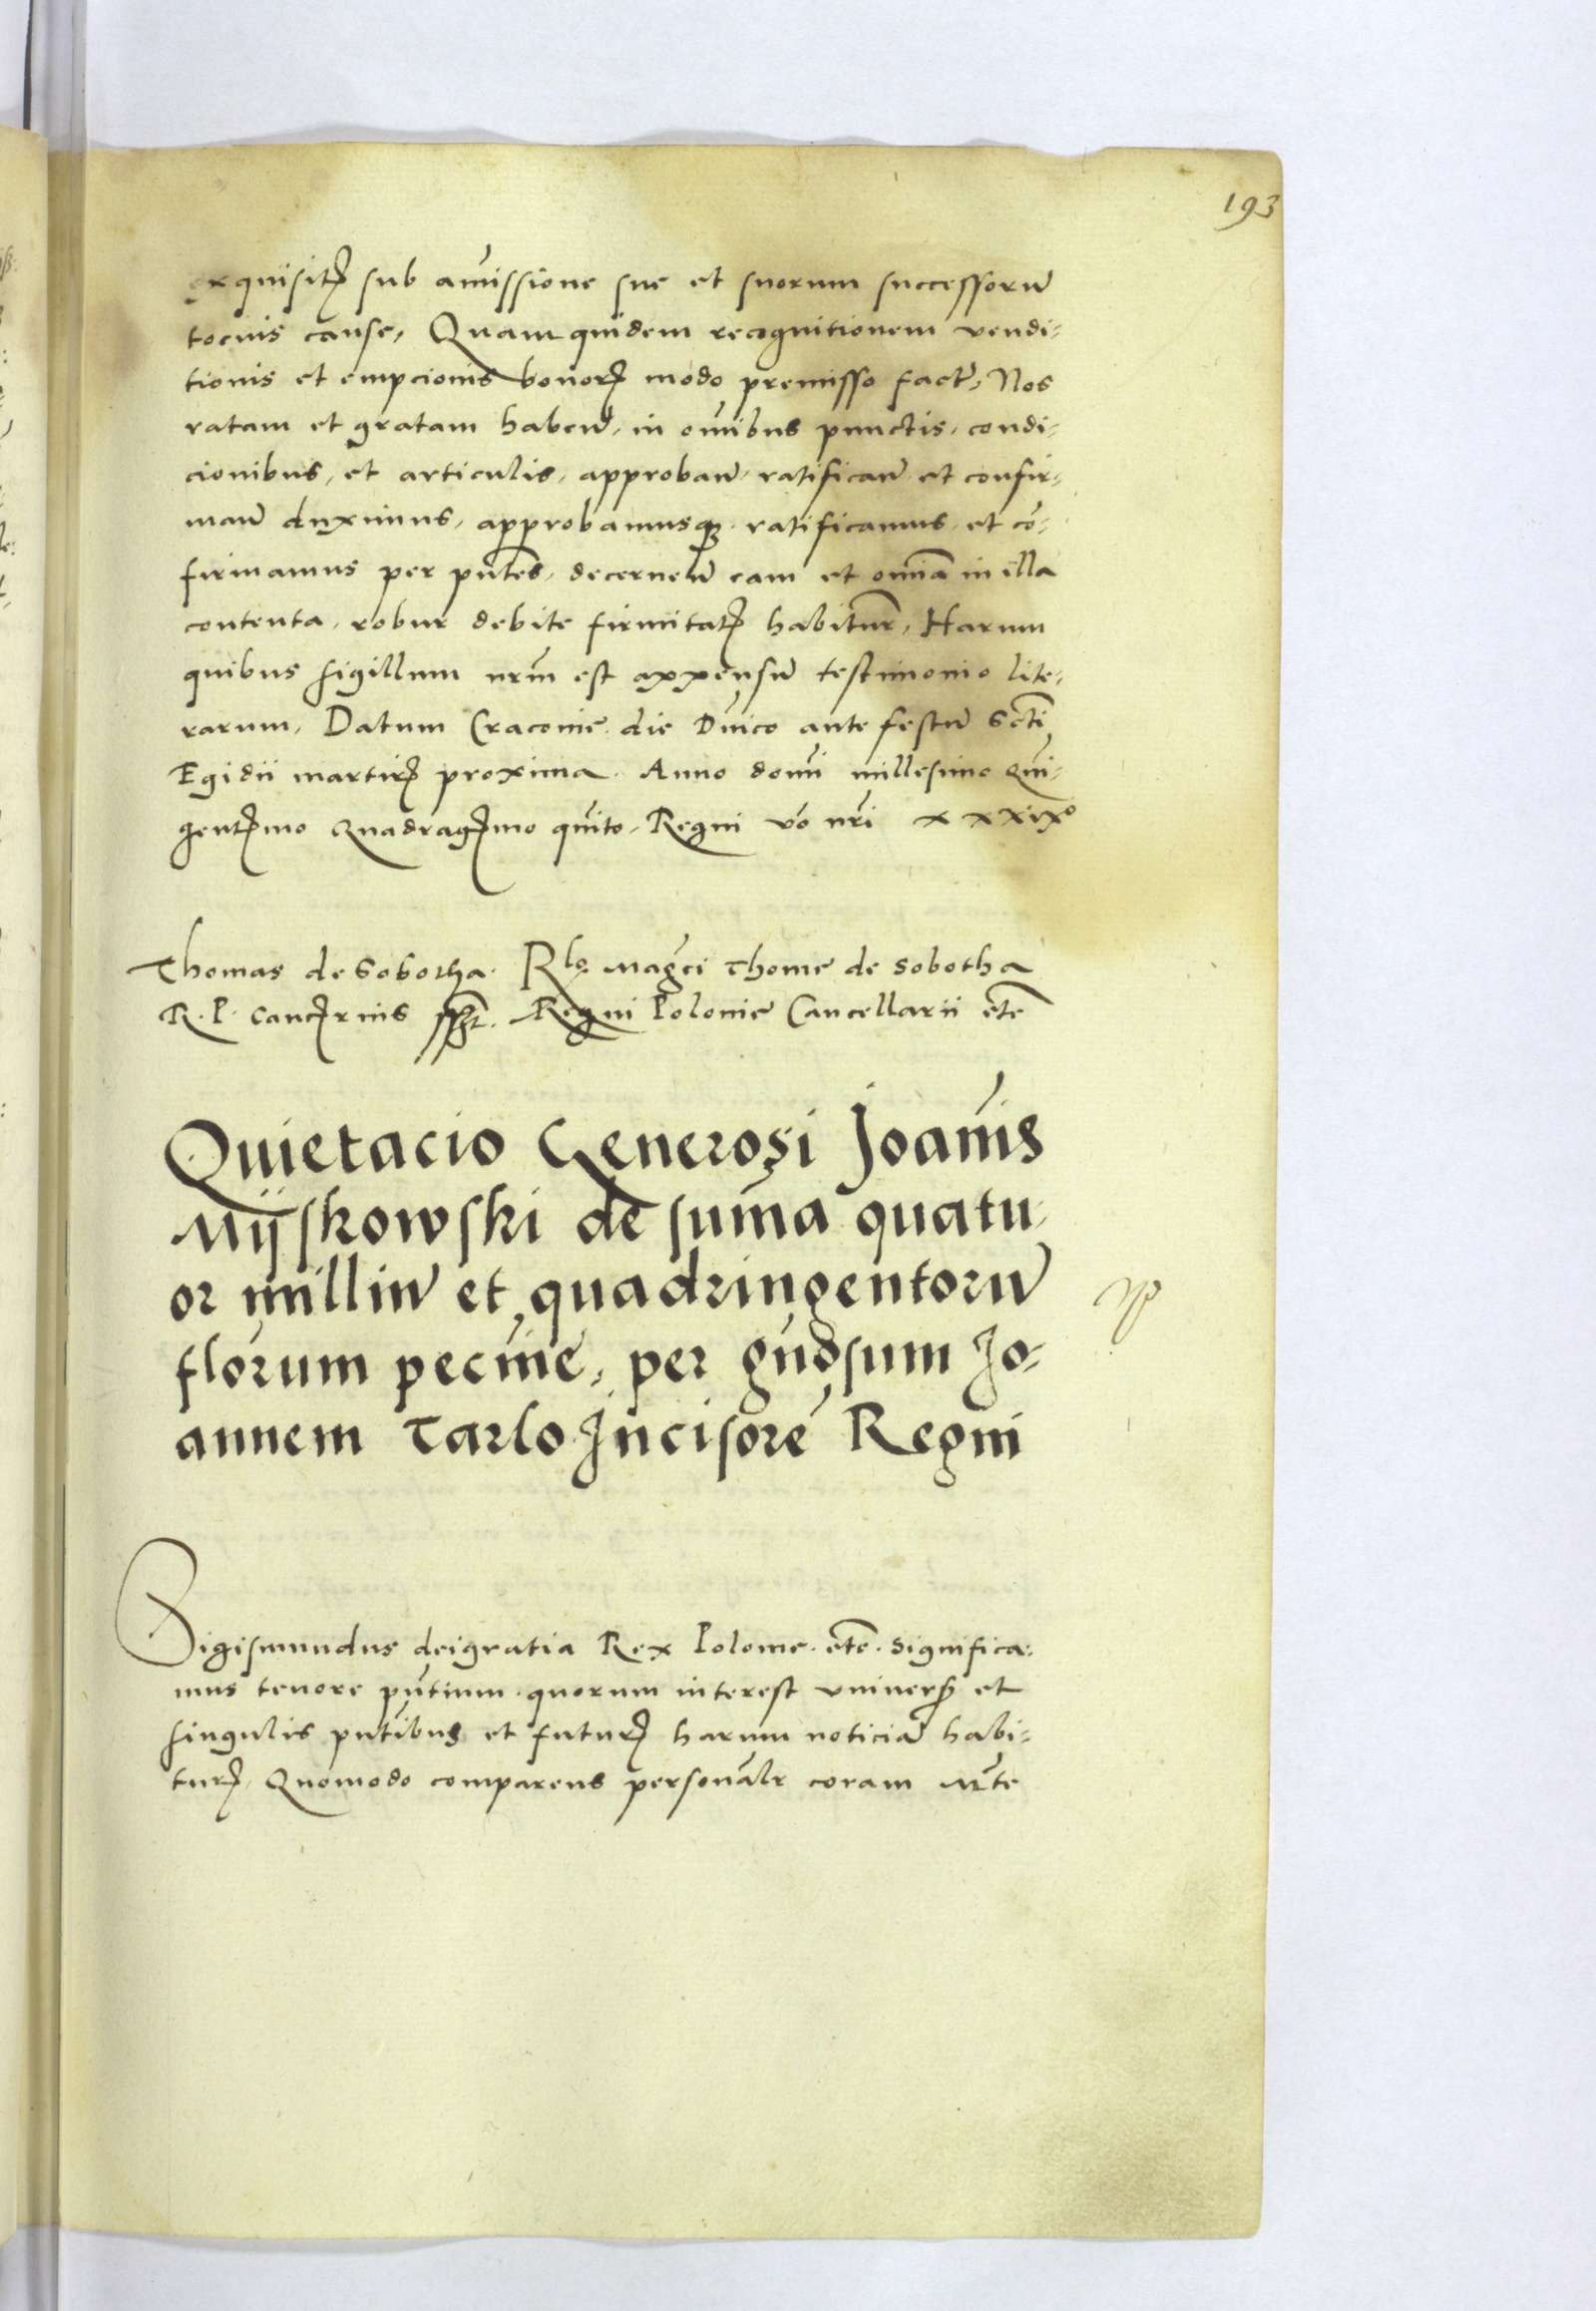 193
exquisitꝭ sub am̄issione sue et suorum successorū
tocius cause, Quam quidem recognitionem vendi-
tionis et empcionis bonorꝭ modo premisso fact̄, Nos
ratam et gratam habeñ, in om̄ibus punctis, condi-
cionibus, et articulis, approbañ, ratificañ et confir-
mañ duximus, approbamusqꝫ ratificamus et cō-
firmamus per pn̄tes, decerneñ eam et om̄ia in illa
contenta, robur debite firmitatꝭ habitur̄, Harum
quibus sigillum nr̄m est appensū testimonio lite-
rarum, Datum Cracovie die Dn̄ico ante festū Scti
Egidii martirꝭ proxima. Anno domī millesimo Qui-
gentꝭimo Quadragꝭimo quīto, Regni vō nr̄i xxxixº
Thomas de Sobotha. Rlº Mag̃ci Thome de Sobotha
R. P. Cancꝭrius sspt̄. Regni Polonie Cancellarii etc̄
Quietacio Generosi Joan̄is
Mÿskowski de sum̄a quatu-
or milliū et quadringentorū
flōrum pecūie, per gn̄osum Jo-
annem Tarlo Incisorē Regni
Sigismundus dei gratia Rex Polonie etc̄. Significa-
mus tenore pn̄tium quorum interest universꝭ et
singulis pn̄tibus et futurꝭ harum noticiā habi-
turꝭ, Quomodo comparens personal̄r coram M̄te